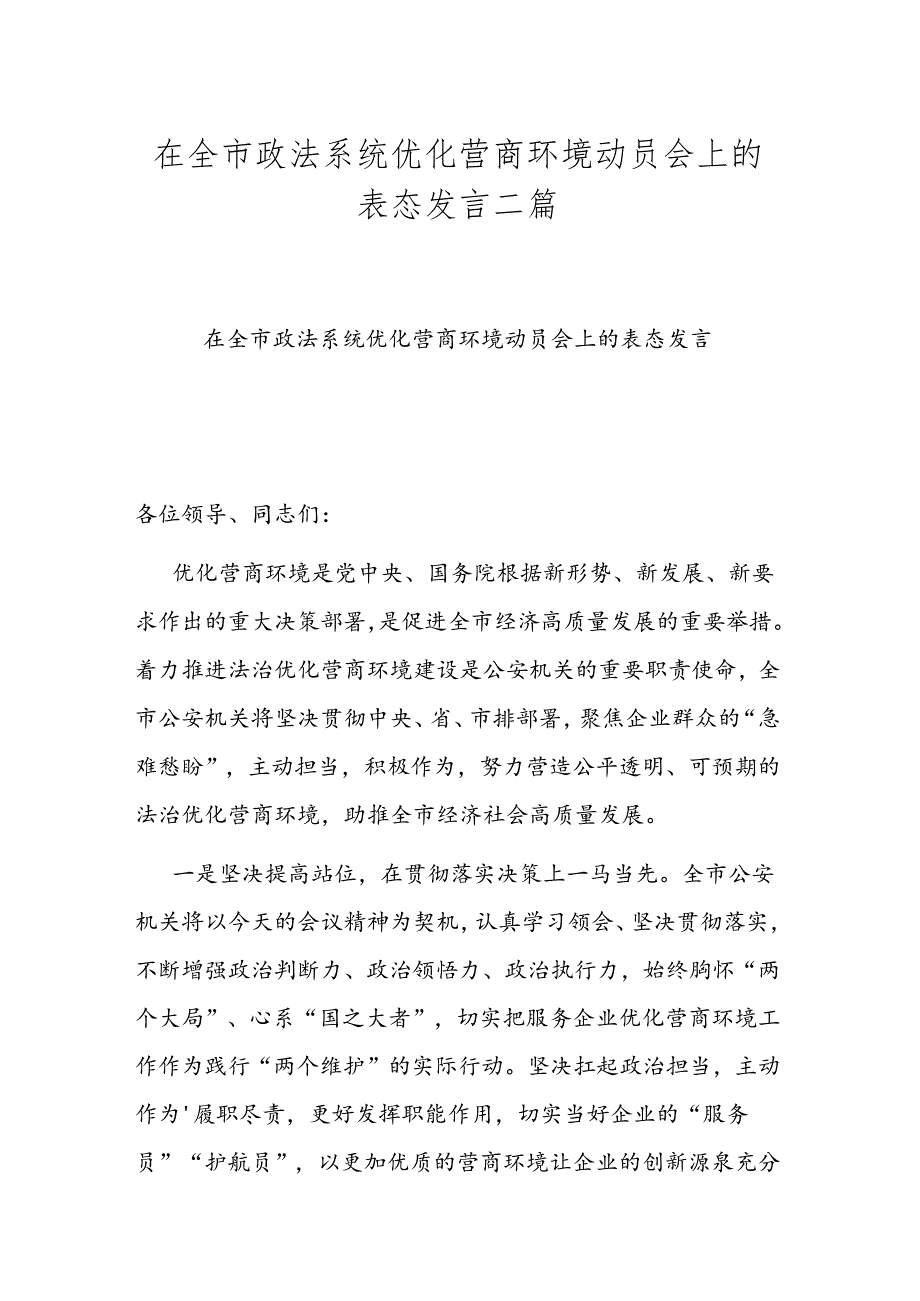 在全市政法系统优化营商环境动员会上的
表态发言二篇
在全市政法系统优化营商环境动员会上的表态发言
各位领导、同志们：
优化营商环境是党中央、国务院根据新形势、新发展、新要
求作出的重大决策部署,是促进全市经济高质量发展的重要举措。
着力推进法治优化营商环境建设是公安机关的重要职责使命，全
市公安机关将坚决贯彻中央、省、市排部署，聚焦企业群众的“急
难愁盼”，主动担当，积极作为，努力营造公平透明、可预期的
法治优化营商环境，助推全市经济社会高质量发展。
一是坚决提高站位，在贯彻落实决策上一马当先。全市公安
机关将以今天的会议精神为契机,认真学习领会、坚决贯彻落实，
不断增强政治判断力、政治领悟力、政治执行力，始终胸怀“两
个大局”、心系“国之大者”，切实把服务企业优化营商环境工
作作为践行“两个维护”的实际行动。坚决扛起政治担当，主动
作为'履职尽责，更好发挥职能作用，切实当好企业的“服务
员”“护航员”，以更加优质的营商环境让企业的创新源泉充分